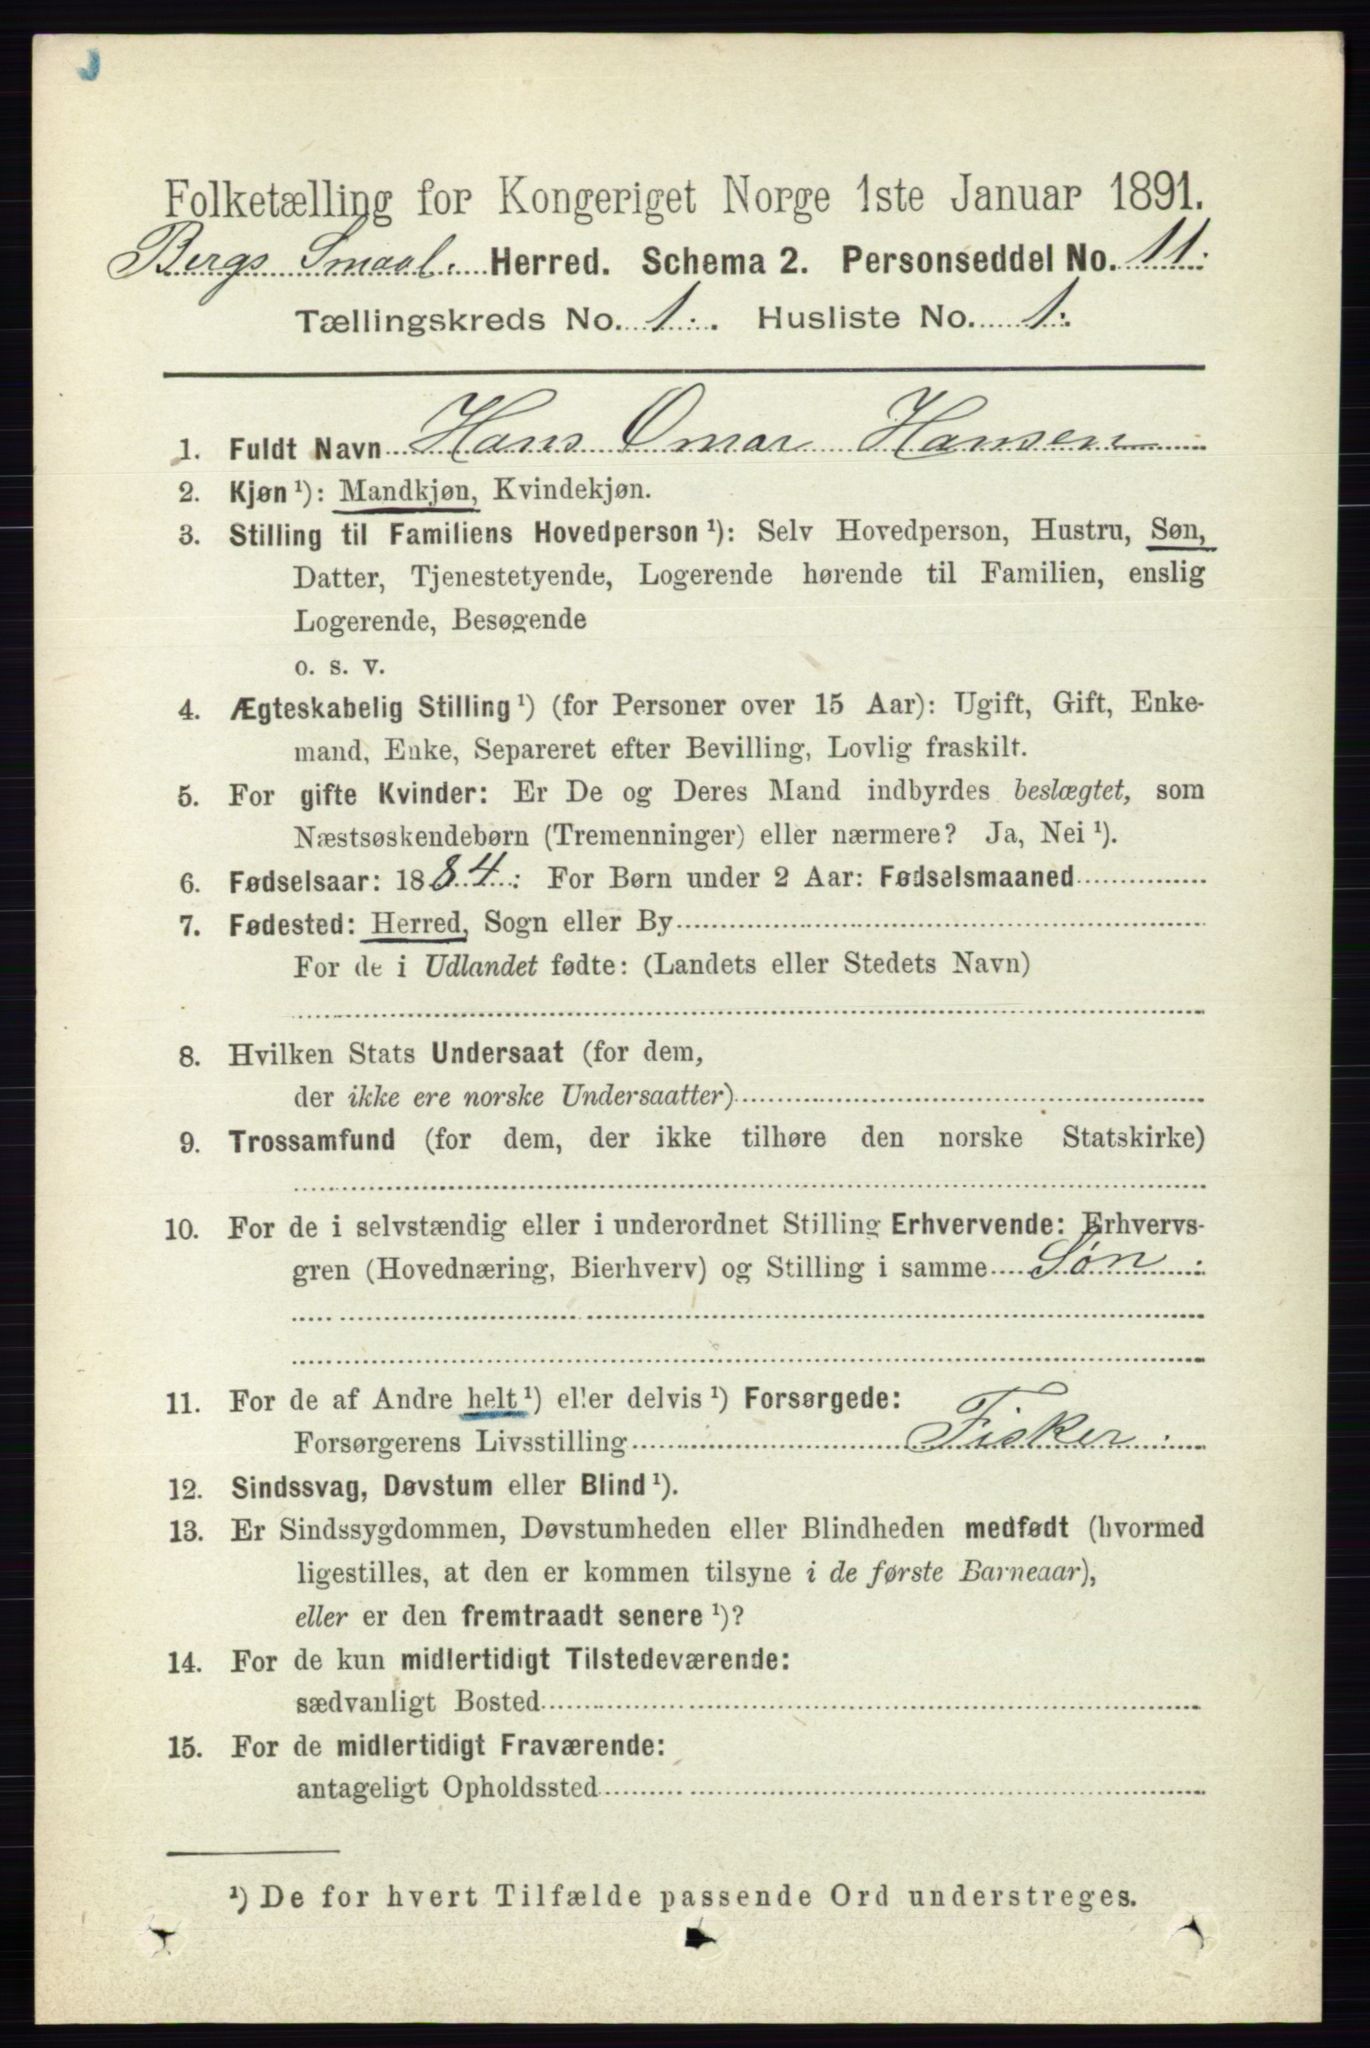 Folketælling for Kongeriget Norge 1ste Januar 1891.
Bergs Smaal. Herred. Schema 2. Personseddel No. 11.
Tællingskreds No. 1. Husliste No. 1.
1. Fuldt Navn Hans Omar Hansen
2. Kjøn ¹): Mandkjøn, Kvindekjøn.
3. Stilling til Familiens Hovedperson ¹): Selv Hovedperson, Hustru, Søn,
Datter, Tjenestetyende, Logerende hørende til Familien, enslig
Logerende, Besøgende
o. s. v.
4. Ægteskabelig Stilling ¹) (for Personer over 15 Aar): Ugift, Gift, Enke-
mand, Enke, Separeret efter Bevilling, Lovlig fraskilt.
5. For gifte Kvinder: Er De og Deres Mand indbyrdes beslægtet, som
Næstsøskendebørn (Tremenninger) eller nærmere? Ja, Nei ¹).
6. Fødselsaar: 1884. For Børn under 2 Aar: Fødselsmaaned
7. Fødested: Herred, Sogn eller By
For de i Udlandet fødte: (Landets eller Stedets Navn)
8. Hvilken Stats Undersaat (for dem,
der ikke ere norske Undersaatter)
9. Trossamfund (for dem, der ikke tilhøre den norske Statskirke)
10. For de i selvstændig eller i underordnet Stilling Erhvervende: Erhvervs-
gren (Hovednæring, Bierhverv) og Stilling i samme Søn
11. For de af Andre helt ¹) eller delvis ¹) Forsørgede:
Forsørgerens Livsstilling Fisker
12. Sindssvag, Døvstum eller Blind ¹).
13. Er Sindssygdommen, Døvstumheden eller Blindheden medfødt (hvormed
ligestilles, at den er kommen tilsyne i de første Barneaar),
eller er den fremtraadt senere ¹)?
14. For de kun midlertidigt Tilstedeværende:
sædvanligt Bosted
15. For de midlertidigt Fraværende:
antageligt Opholdssted
¹) De for hvert Tilfælde passende Ord understreges.